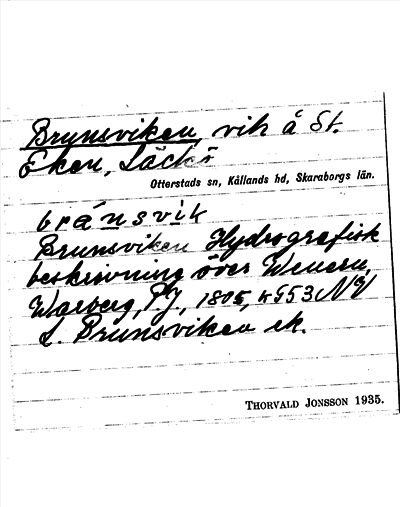 Brunsviken, vik å St.
Eken, Läckö
Otterstads sn, Kållands hd, Skaraborgs län.
bránsvik
Brunsviken Hydrografisk
beskrivning över Wenern,
Warberg, P.J., 1805,
L. Brunsviken ek.
THORVALD JONSSON 1935.